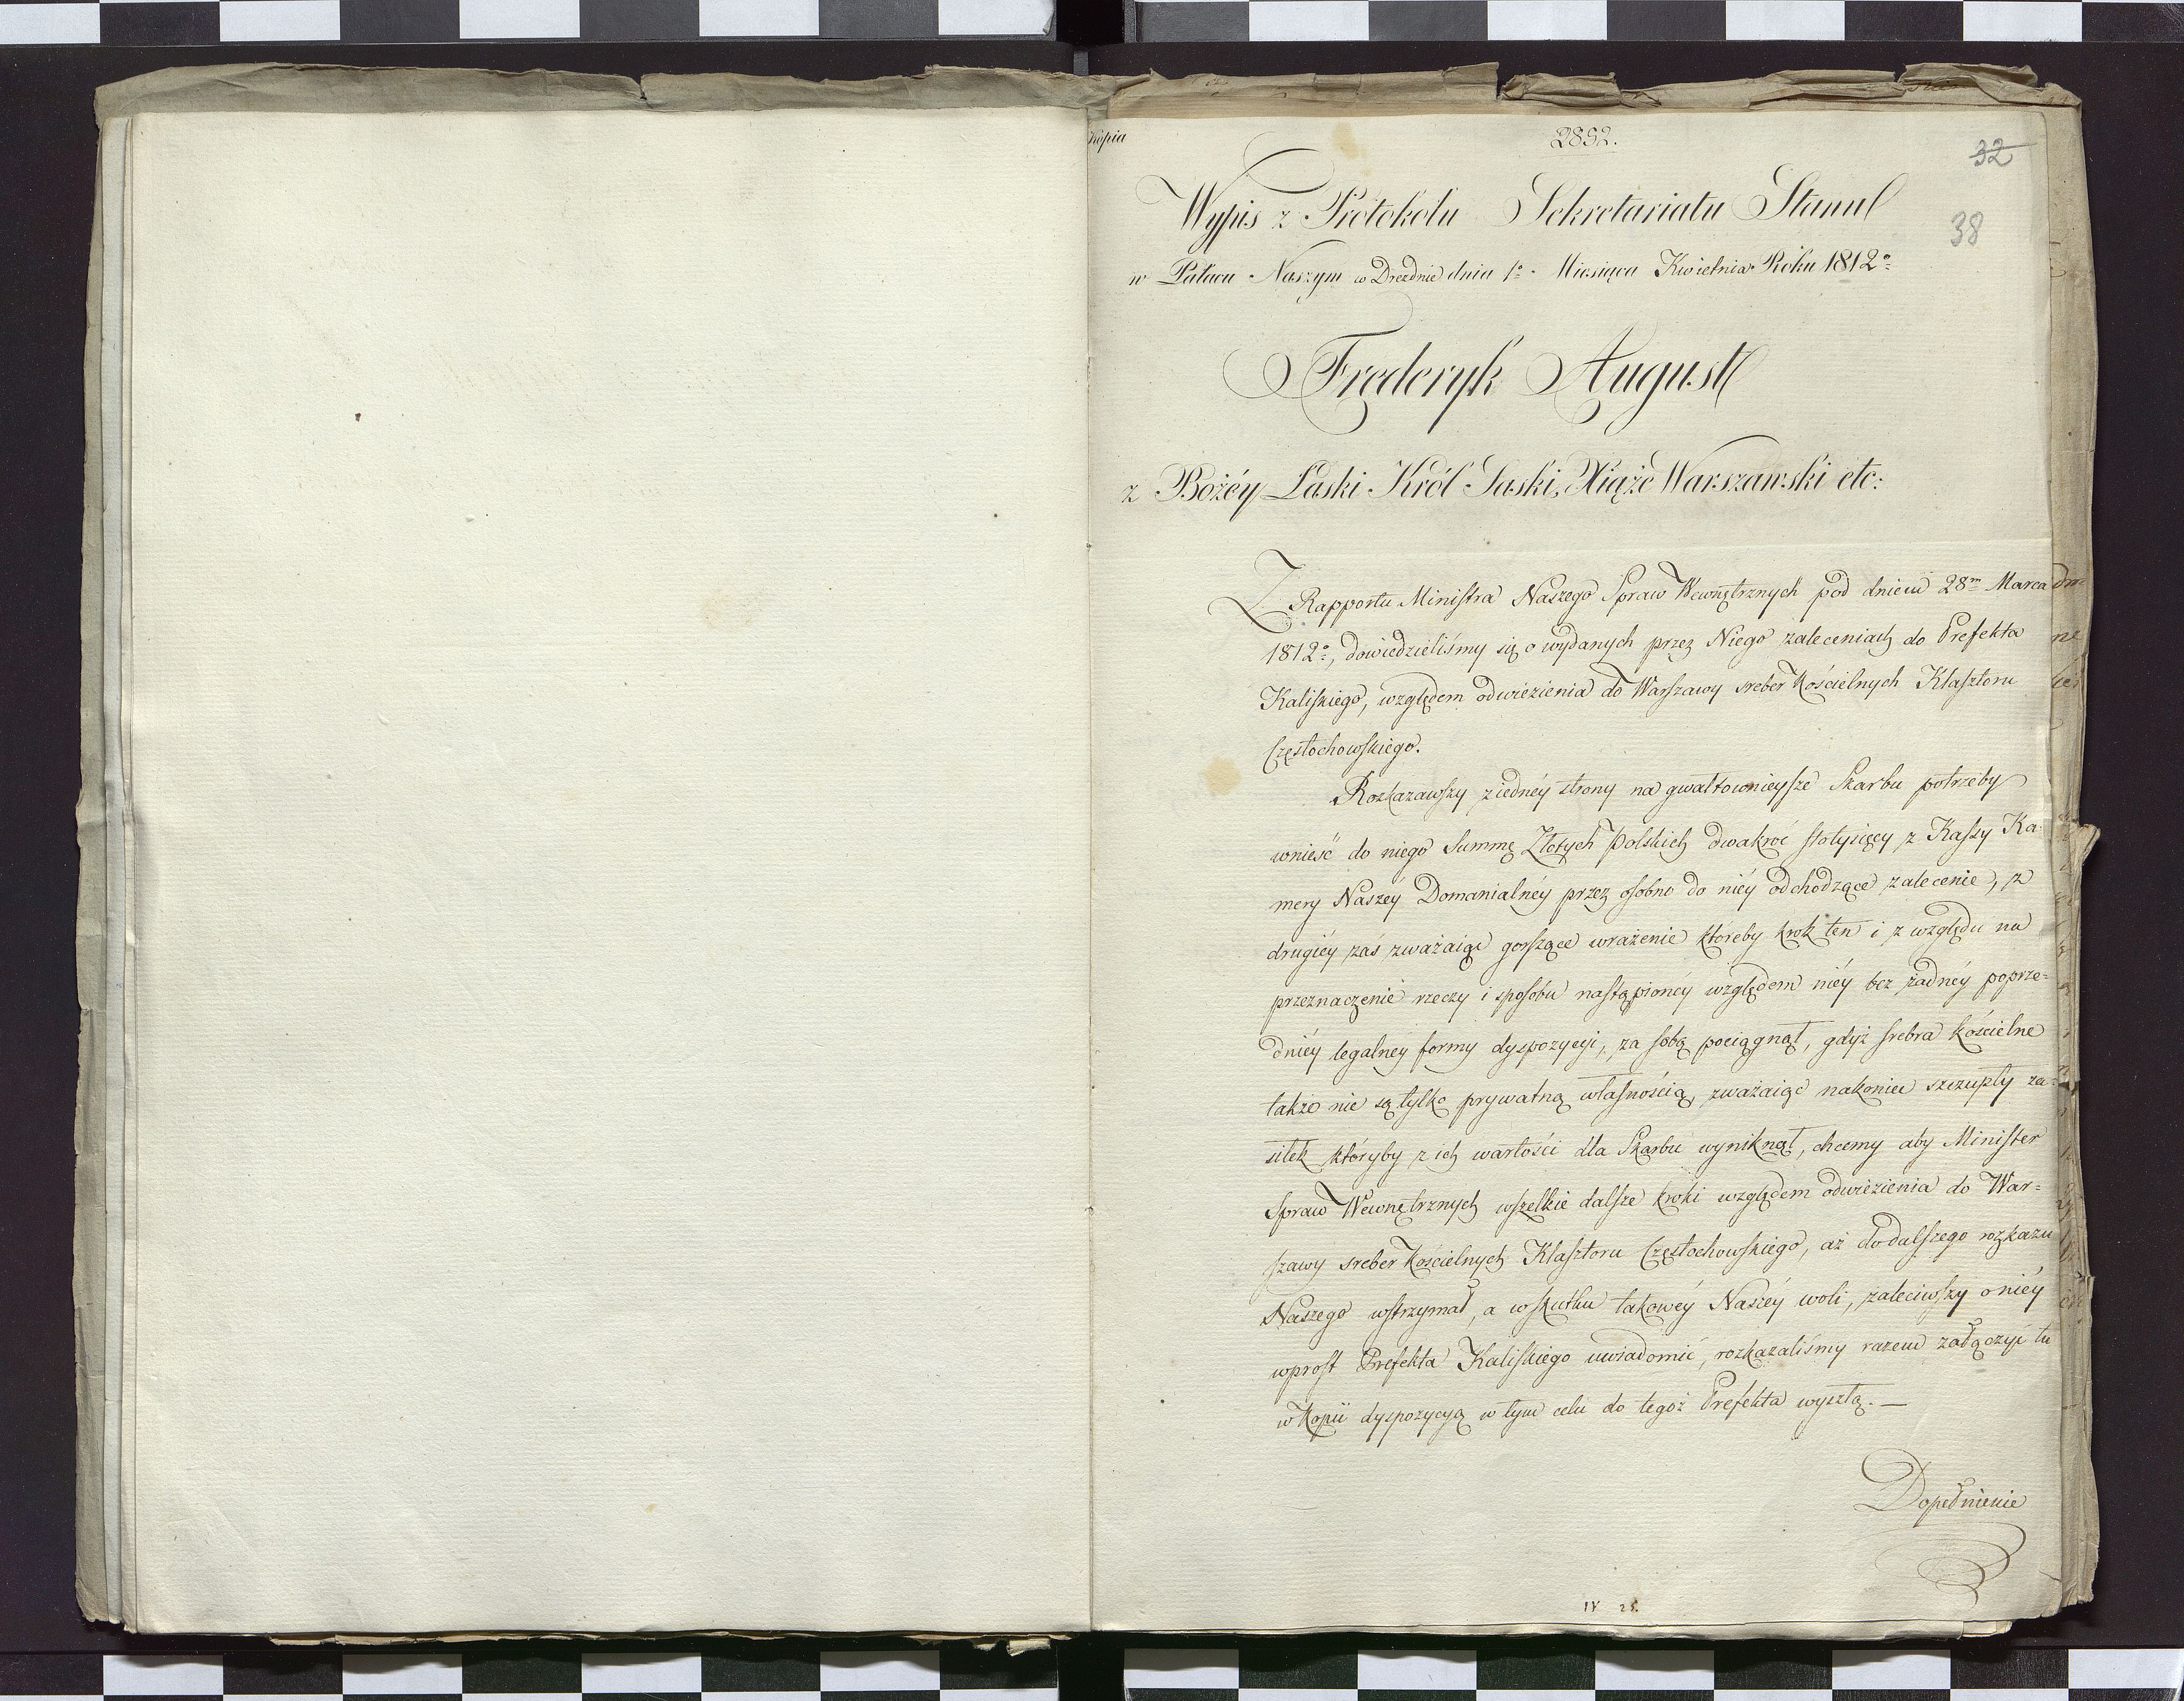 Kopia
2892.
32
38
Wypis z Protokołu Sekretariatu Stanu
w Pałacu Naszym w Dreźnie dnia 1º Miesiąca Kwietnia Roku 1812º
Frederyk August
z Bożéy Łaski Król Saski, Xiąże Warszawski etc:
Z Rapportu Ministra Naszego Spraw Wewnętrznych pod dniem 28m Marca
1812º, dowiedzieliśmy się o wydanych przez Niego zaleceniach do Prefekta
Kaliskiego, względem odwiezienia do Warszawy sreber Kościelnych Klasztoru
Częstochowskiego.
Rozkazawszy z iednéy strony na gwałtownieysze Skarbu potrzeby
wnieść do niego Summę Złotych Polskich dwakroć stotysięcy z Kassy Ka-
mery Naszéy Domanialnéy przez osobne do niéy odchodzące zalecenie, z
drugiéy zaś zważaiąc gorszące wrażenie któreby krok ten i z względu na
przeznaczenie rzeczy i sposobu nastąpionéy względem niéy bez żadnéy poprze=
dniéy legalney formy dyspozycyi, za sobą pociągnął, gdyż srebra kościelne
także nie są tylko prywatną własnością, zważaiąc nakoniec szczupły za=
siłek któryby z ich wartości dla Skarbu wyniknął, chcemy aby Minister
Spraw Wewnętrznych wszelkie dalsze kroki względem odwiezienia do War=
szawy sreber Kościelnych Klasztoru Częstochowskiego, aż do dalszego rozkazu
Naszego wstrzymał, a w skutku takowéy Naszéy woli, zaleciwszy o niéy
wprost Prefekta Kaliskiego uwiadomić, rozkazaliśmy razem załączyć tu
w Kopii dyspozycyą w tym celu do tegoż Prefekta wyszłą.—
Dopełnienie
IV 25.